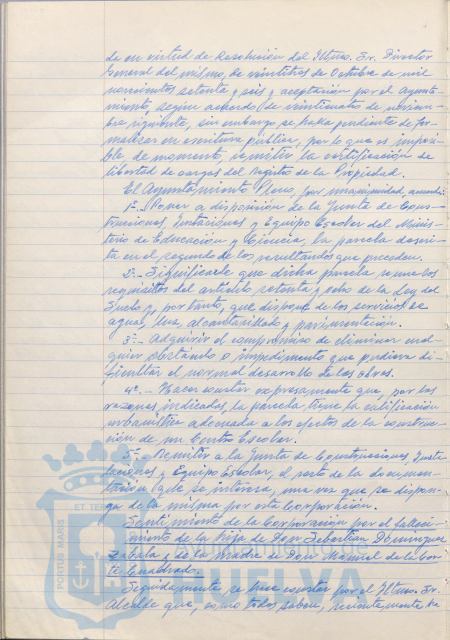 da en virtud de Resolución del Iltmo. Sr. Director
General del mismo, de veintitres de Octubre de mil
novecientos setenta y seis y aceptación por el Ayunta
miento, según acuerdo de veinticuatro de noviem-
bre siguiente, sin embargo, se halla pendiente de for-
malizar en escritura pública, por lo que es imposi-
ble, de momento, remitir la certificación de
libertad de cargas del Registro de la Propiedad.
El Ayuntamiento Pleno, por unanimidad, acuerda:
1º.- Poner a disposición de la Junta de Cons-
trucciones Instalaciones y Equipo Escolar del Minis-
terio de Educación y Ciencia, la parcela descri-
ta en el segundo de los resultandos que preceden.
2º.- Significarle que dicha parcela reune los
requisitos del artículo setenta y ocho de la Ley del
Suelo y, por tanto, que dispone de los servicios de
agua, luz, alcantarillado y pavimentación.
3º.- Adquirir el compromiso de eliminar cual-
quier obstáculo o impedimento que pudiera di-
ficultar el normal desarrollo de las obras.
4º.- Hacer constar expresamente que, por las
razones indicadas, la parcela tiene la calificación
urbanística adecuada a los efectos de la construc-
ción de un Centro Escolar.
5º.- Remitir a la Junta de Construcciones Insta
laciones y Equipo Escolar, el resto de la documen-
tación que se interesa, una vez que se dispon-
ga de la misma por esta Corporación.
Sentimiento de la Corporación por el falleci-
miento de la hija de Don Sebastián Domínguez
Zabala y de la madre de Don Manuel de la Cor
te
Seguidamente, se hace constar por el Iltmo. Sr.
Alcalde que, como todos saben, recientemente ha
PORTUS MARIS
ET TER
HUELVA